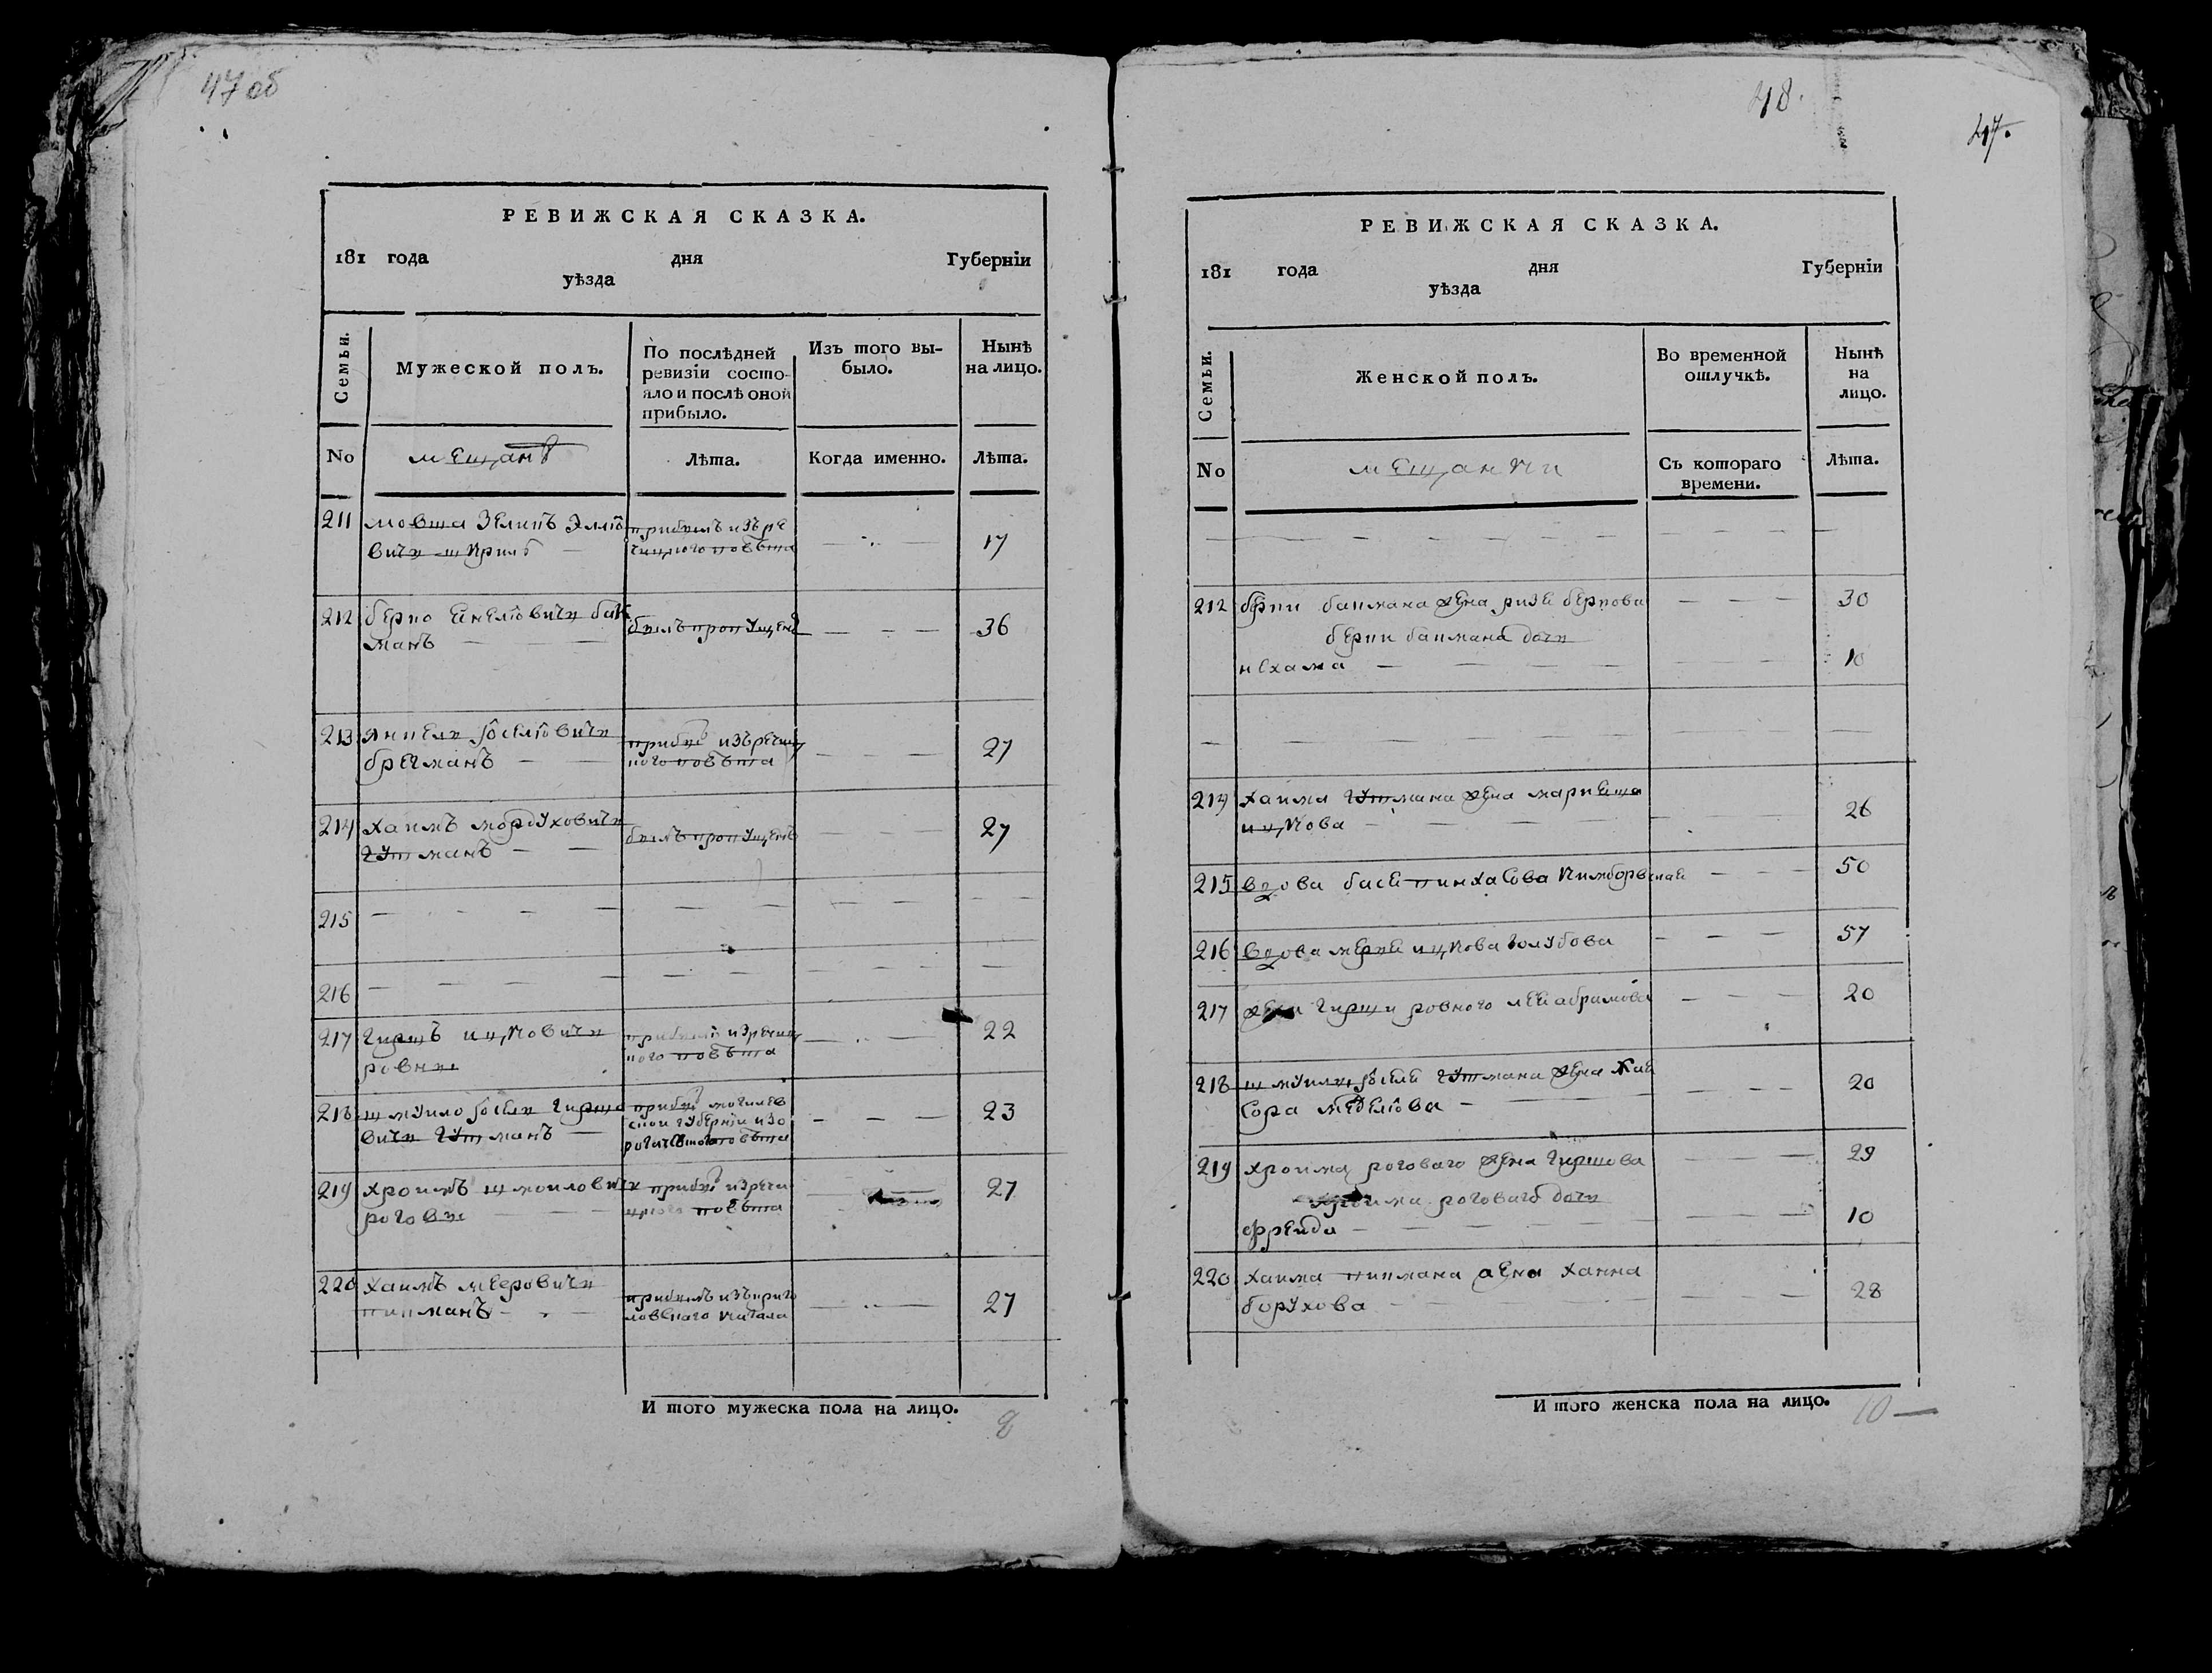 47 об
РЕВИЖСКАЯ СКАЗКА.
181 года дня Губерніи
уѣзда
Семьи.
Мужеской полъ.
По послѣдней ревизіи состо-
яло и послѣ оной
прибыло.
Изъ того вы-
было.
Нынѣ
на лицо.
No мещанѣ Лѣта. Когда именно. Лѣта.
211 мовша Зеликъ прибылъ изъ ре
вичъ чицкого повѣта 17
212 берко бак былъ пропущенъ 36
манъ
213 янкель прибылъ изъ речиц
брегманъ кого повѣта 27
214 хаимъ мордуховичъ былъ пропущенъ 27
гутманъ
215
216
217 гиршъ ицковичъ прибылъ изъ речиц 22
ровны кого повѣта
218 шмуило гирша прибылъ могилев 23
вичъ гутманъ ской губерніи изо
повѣта
219 хроимъ шмоиловичъ прибылъ изъ речи 27
роговы цкого повѣта
220 хаимъ мееровичъ прибылъ изъ 27
пикманъ кагала
И того мужеска пола на лицо. 8
48.
47.
РЕВИЖСКАЯ СКАЗКА.
181 года дня Губерніи
уѣзда
Семьи.
Женской полъ.
Во временной
отлучкѣ.
Нынѣ
на
лицо.
No мещанки Съ котораго
времени. Лѣта.
212 берки бакмана жена ризе беркова 30
берки бакмана дочь
нехама 10
214 хаима гутмана жена
ицкова 26
215 вдова басе пинхасова 50
216 вдова мерке ицкова голубова 57
217 жена гирши ровного лея абрамова 20
218 шмуилы гутмана жена хае
сора 20
219 хроима рогового жена гиршова 29
хроима рогового дочь
фрейда 10
220 хаима пикмана жена ханна
борухова 28
И того женска пола на лицо. 10